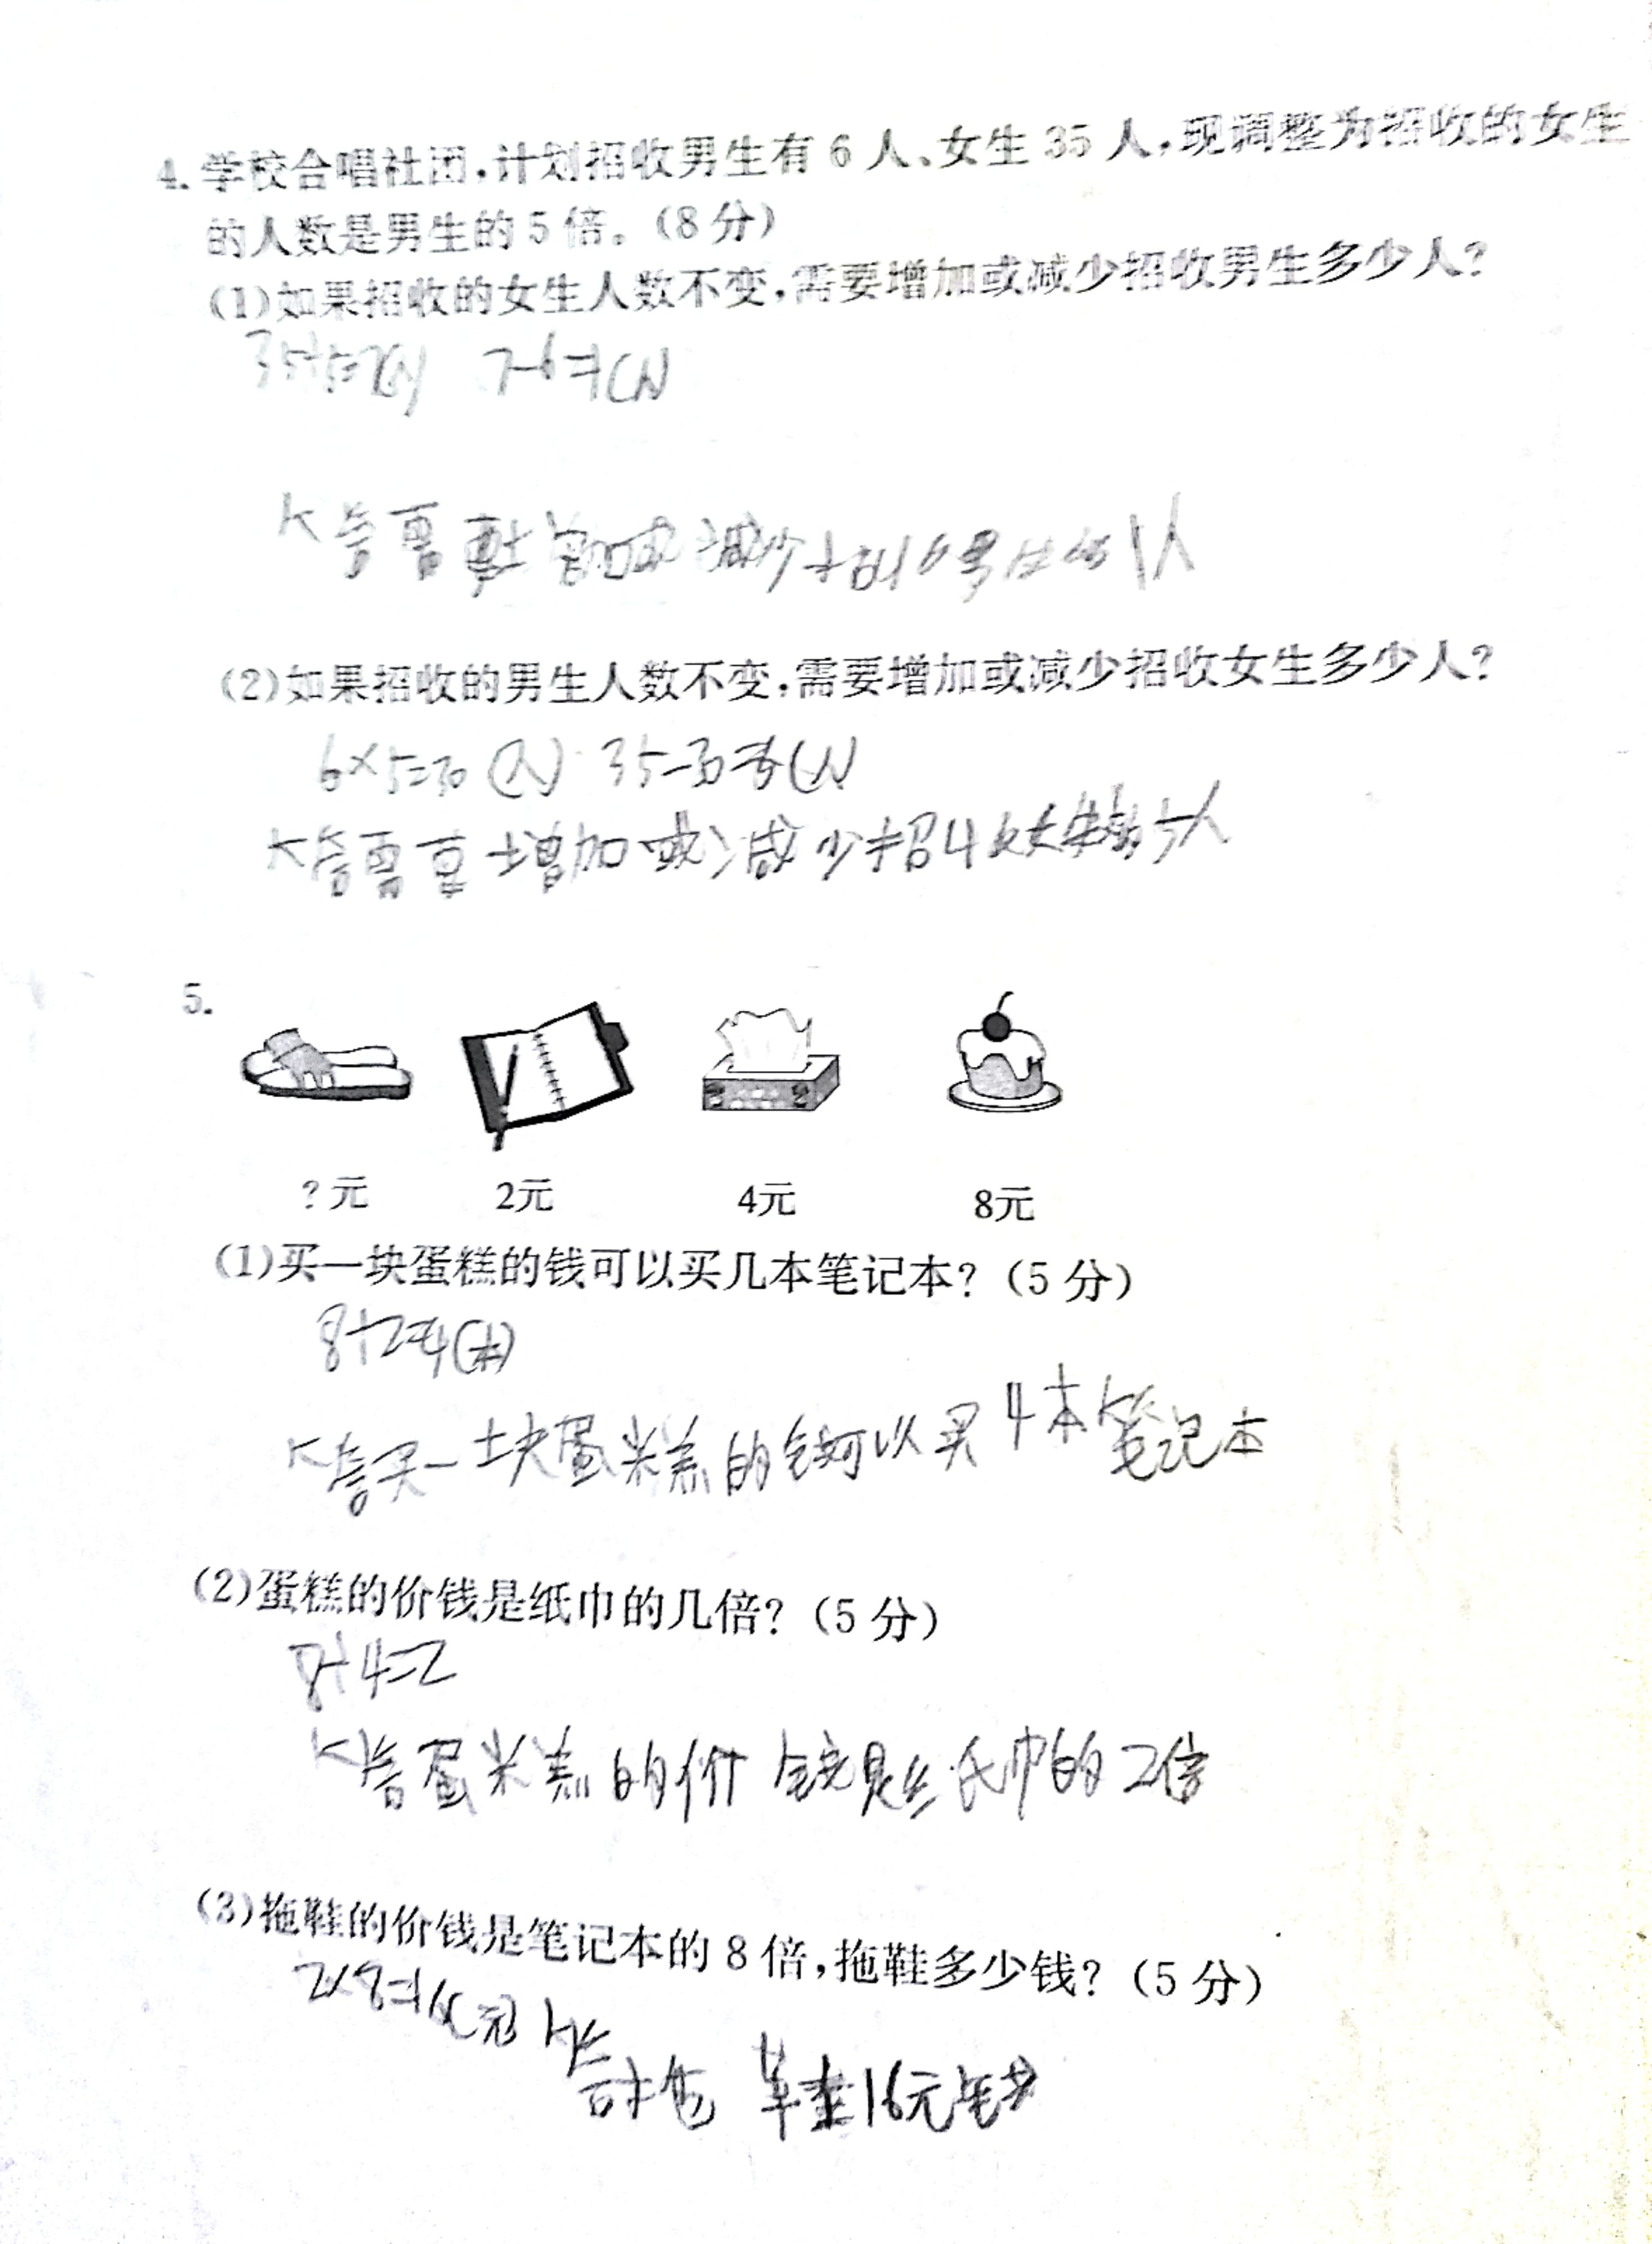 4. 学校合唱社团,计划招收男生有 6 人、女生 35 人,现调整为招收的女生
的人数是男生的 5 倍。(8 分)
(1)如果招收的女生人数不变,需要增加或减少招收男生多少人?
35÷5=7(人) 7-6=1(人)
答需要增加或减少招收男生1人
(2)如果招收的男生人数不变,需要增加或减少招收女生多少人?
6×5=30(人) 35-30=5(人)
答需要增加或减少招收女生5人
5.
?元 2元 4元 8元
(1)买一块蛋糕的钱可以买几本笔记本?(5 分)
8÷2=4(本)
答买一块蛋糕的钱可以买4本笔记本
(2)蛋糕的价钱是纸巾的几倍?(5 分)
8÷4=2
答蛋糕的价钱是纸巾的2倍
(3)拖鞋的价钱是笔记本的 8 倍,拖鞋多少钱?(5 分)
2×8=16(元) 答拖鞋16元钱